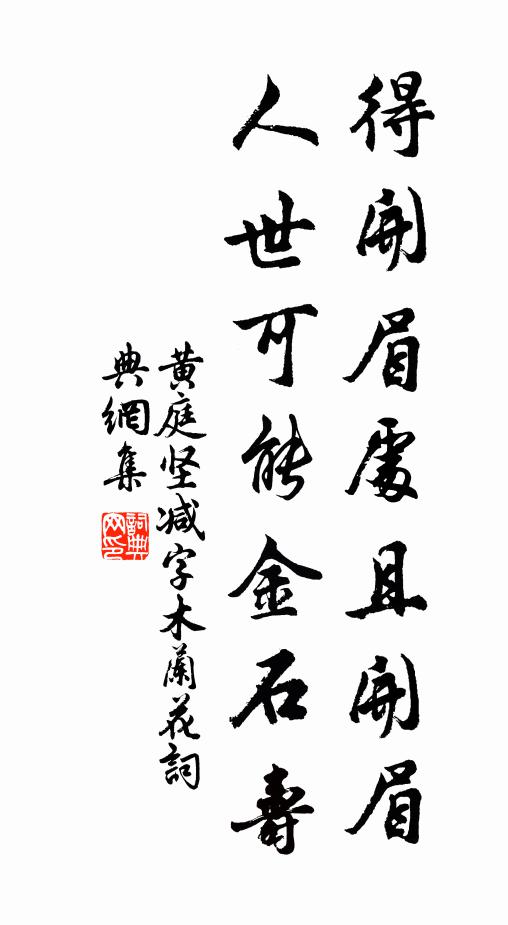 得開眉處且開眉
人世可能金石壽
黄庭坚减字木蘭花詞
典網集
詞典網印